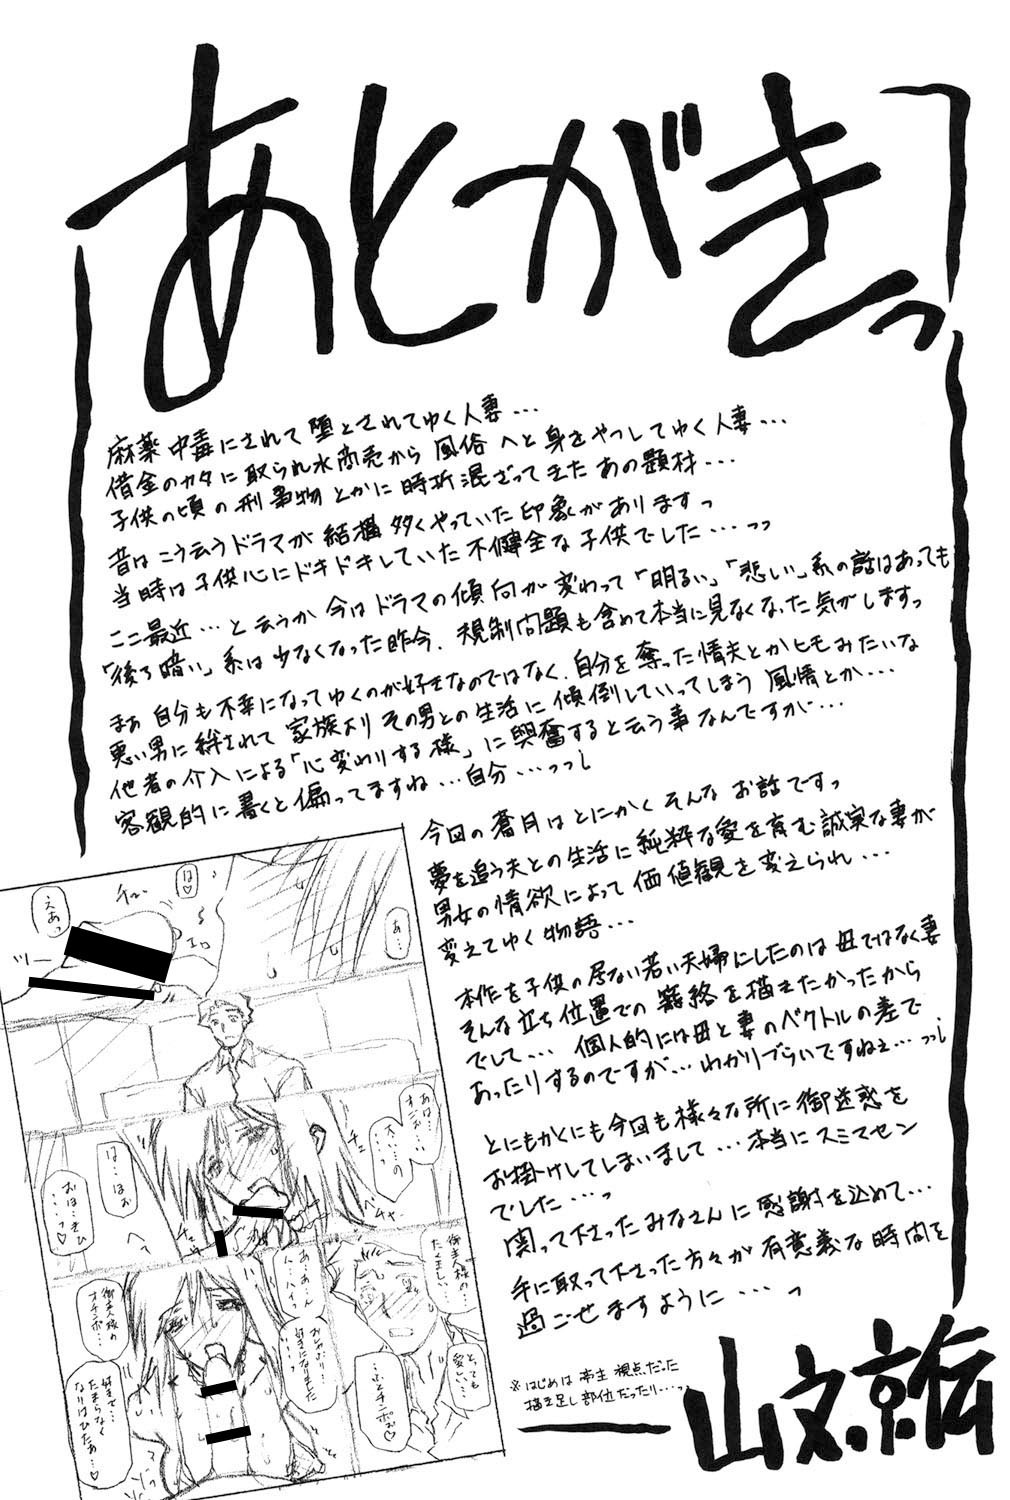 あとがきっ
麻薬中毒にされて堕とされてゆく人妻…
借金のカタに取られ水商売から風俗へと身をやつしてゆく人妻…
子供の頃の刑事物とかに時折混ざってきたあの題材…
昔はこう云うドラマが結構多くやっていた印象がありますっ
当時は子供心にドキドキしていた不健全な子供でした…っっ
ここ最近…と云うか今はドラマの傾向が変わって「明るい」「悲しい」系の話はあっても
「後ろ暗い」系は少なくなった昨今、規制問題も含めて本当に見なくなった気がしますっ
まぁ自分も不幸になってゆくのが好きなのではなく、自分を奪った情夫とかヒモみたいな
悪い男に絆されて家族よりその男との生活に傾倒していってしまう風情とか…
他者の介入による「心変わりする様」に興奮すると云う事なんですが…
客観的に書くと偏ってますね…自分…っっ
今回の蒼月はとにかくそんなお話ですっ
夢を追う夫との生活に純粋な愛を育む誠実な妻が
男女の情欲によって価値観を変えられ…
変えてゆく物語…
本作を子供の居ない若い夫婦にしたのは母ではなく妻
そんな立ち位置での籠絡を描きたかったから
でして… 個人的には母と妻のベクトルの差で
あったりするのですが…わかりづらいですねぇ…っっ
とにもかくにも今回も様々な所に御迷惑を
お掛けしてしまいまして…本当にスミマセン
でした…っ
関って下さったみなさんに感謝を込めて…
手に取って下さった方々が有意義な時間を
過ごせますように…っ
※はじめは亭主視点だった
描き足し部位だったり…っっ
山文京伝
あ…
は♡
チュ
えあっ
ツー
エロ
あはぁ…
オ…
太…の
は…ほお
おほ…きひ
…っ♡
御主人様の…
たまし…
あ…あ…ん
人…ハイ…
おしゃぶり…
好きになりました
…っ
とっても
愛し…
…ふとチンポぉ♡
御主人様の
オチンポ…
好きで…
たまらなく
なりまひたぁ…♡